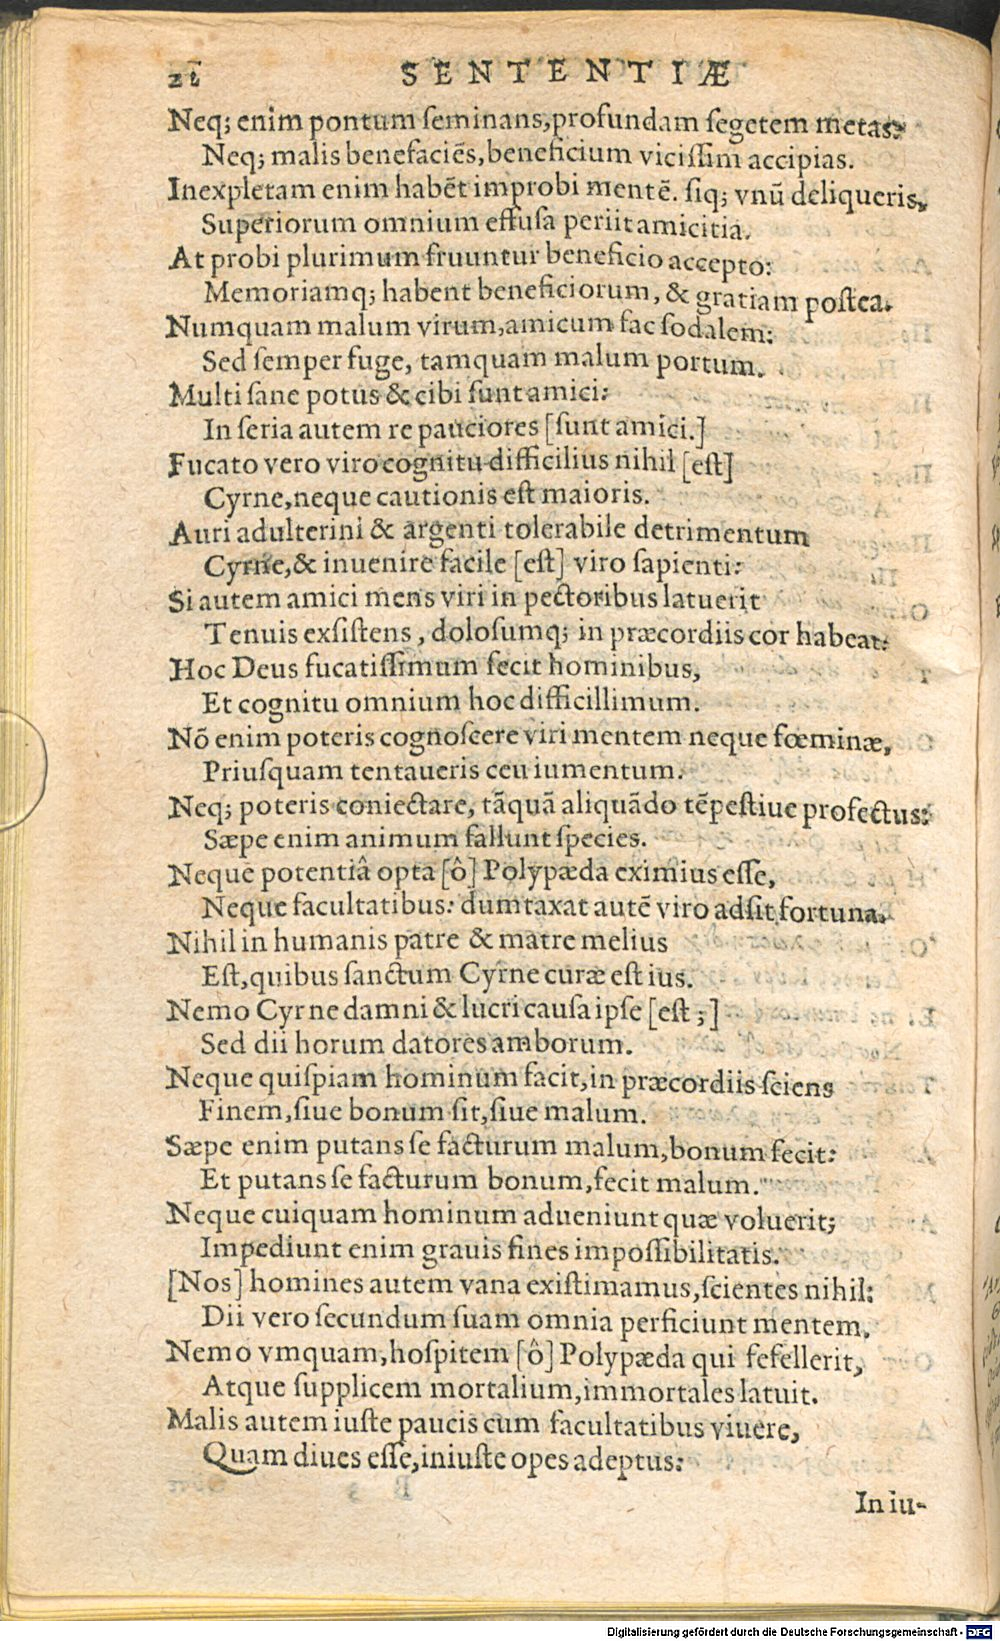 21 SENTENTIÆ
Neq; enim pontum ſeminans, profundam ſegetem metas:
Neq; malis benefaciēs, beneficium viciſſim accipias.
Inexpletam enim habēt improbi mentē. ſiq; vnū deliqueris,
Superiorum omnium effuſa periit amicitia.
At probi plurimum fruuntur beneficio accepto:
Memoriamq; habent beneficiorum, & gratiam poſtea.
Numquam malum virum, amicum fac ſodalem:
Sed ſemper fuge, tamquam malum portum.
Multi ſane potus & cibi ſunt amici:
In ſeria autem re pauciores [ſunt amici.]
Fucato vero viro cognitu difficilius nihil [eſt]
Cyrne, neque cautionis eſt maioris.
Auri adulterini & argenti tolerabile detrimentum
Cyrne, & inuenire facile [eſt] viro ſapienti:
Si autem amici mens viri in pectoribus latuerit
Tenuis exſiſtens, doloſumq; in præcordiis cor habeat:
Hoc Deus fucatiſſimum fecit hominibus,
Et cognitu omnium hoc difficillimum.
Nō enim poteris cognoſcere viri mentem neque fœminæ,
Priuſquam tentaueris ceu iumentum.
Neq; poteris coniectare, tāquā aliquādo tēpeſtiue profectus:
Sæpe enim animum fallunt ſpecies.
Neque potentiâ opta [ô] Polypæda eximius eſſe,
Neque facultatibus: dumtaxat autē viro adſit fortuna.
Nihil in humanis patre & matre melius
Eſt, quibus ſanctum Cyrne curæ eſt ius.
Nemo Cyrne damni & lucri cauſa ipſe [eſt;]
Sed dii horum datores amborum.
Neque quiſpiam hominum facit, in præcordiis ſciens
Finem, ſiue bonum ſit, ſiue malum.
Sæpe enim putans ſe facturum malum, bonum fecit:
Et putans ſe facturum bonum, fecit malum.
Neque cuiquam hominum adueniunt quæ voluerit;
Impediunt enim grauis fines impoſſibilitatis.
[Nos] homines autem vana exiſtimamus, ſcientes nihil:
Dii vero ſecundum ſuam omnia perficiunt mentem.
Nemo vmquam, hoſpitem [ô] Polypæda qui fefellerit,
Atque ſupplicem mortalium, immortales latuit.
Malis autem iuſte paucis cum facultatibus viuere,
Quam diues eſſe, iniuſte opes adeptus:
In iu-
Digitalisierung gefördert durch die Deutsche Forschungsgemeinschaft - DFG